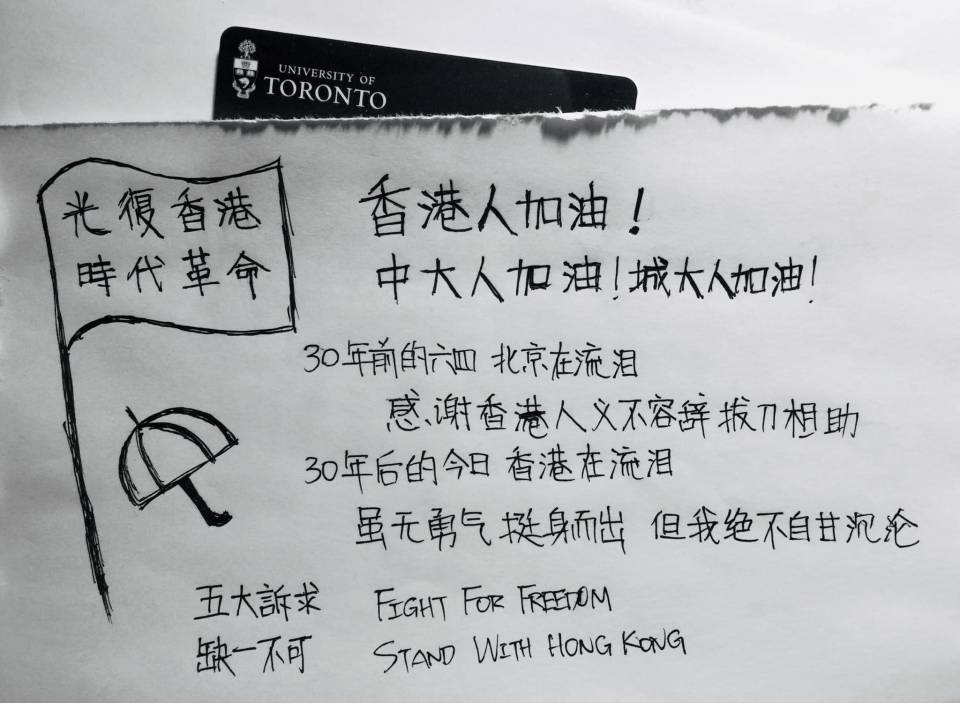 UNIVERSITY OF
TORONTO
光復香港
時代革命
香港人加油！
中大人加油！城大人加油！
30年前的六四 北京在流泪
感谢香港人义不容辞拔刀相助
30年后的今日 香港在流泪
虽无勇气挺身而出 但我绝不自甘沉沦
五大訴求
缺一不可
FIGHT FOR FREEDOM
STAND WITH HONG KONG